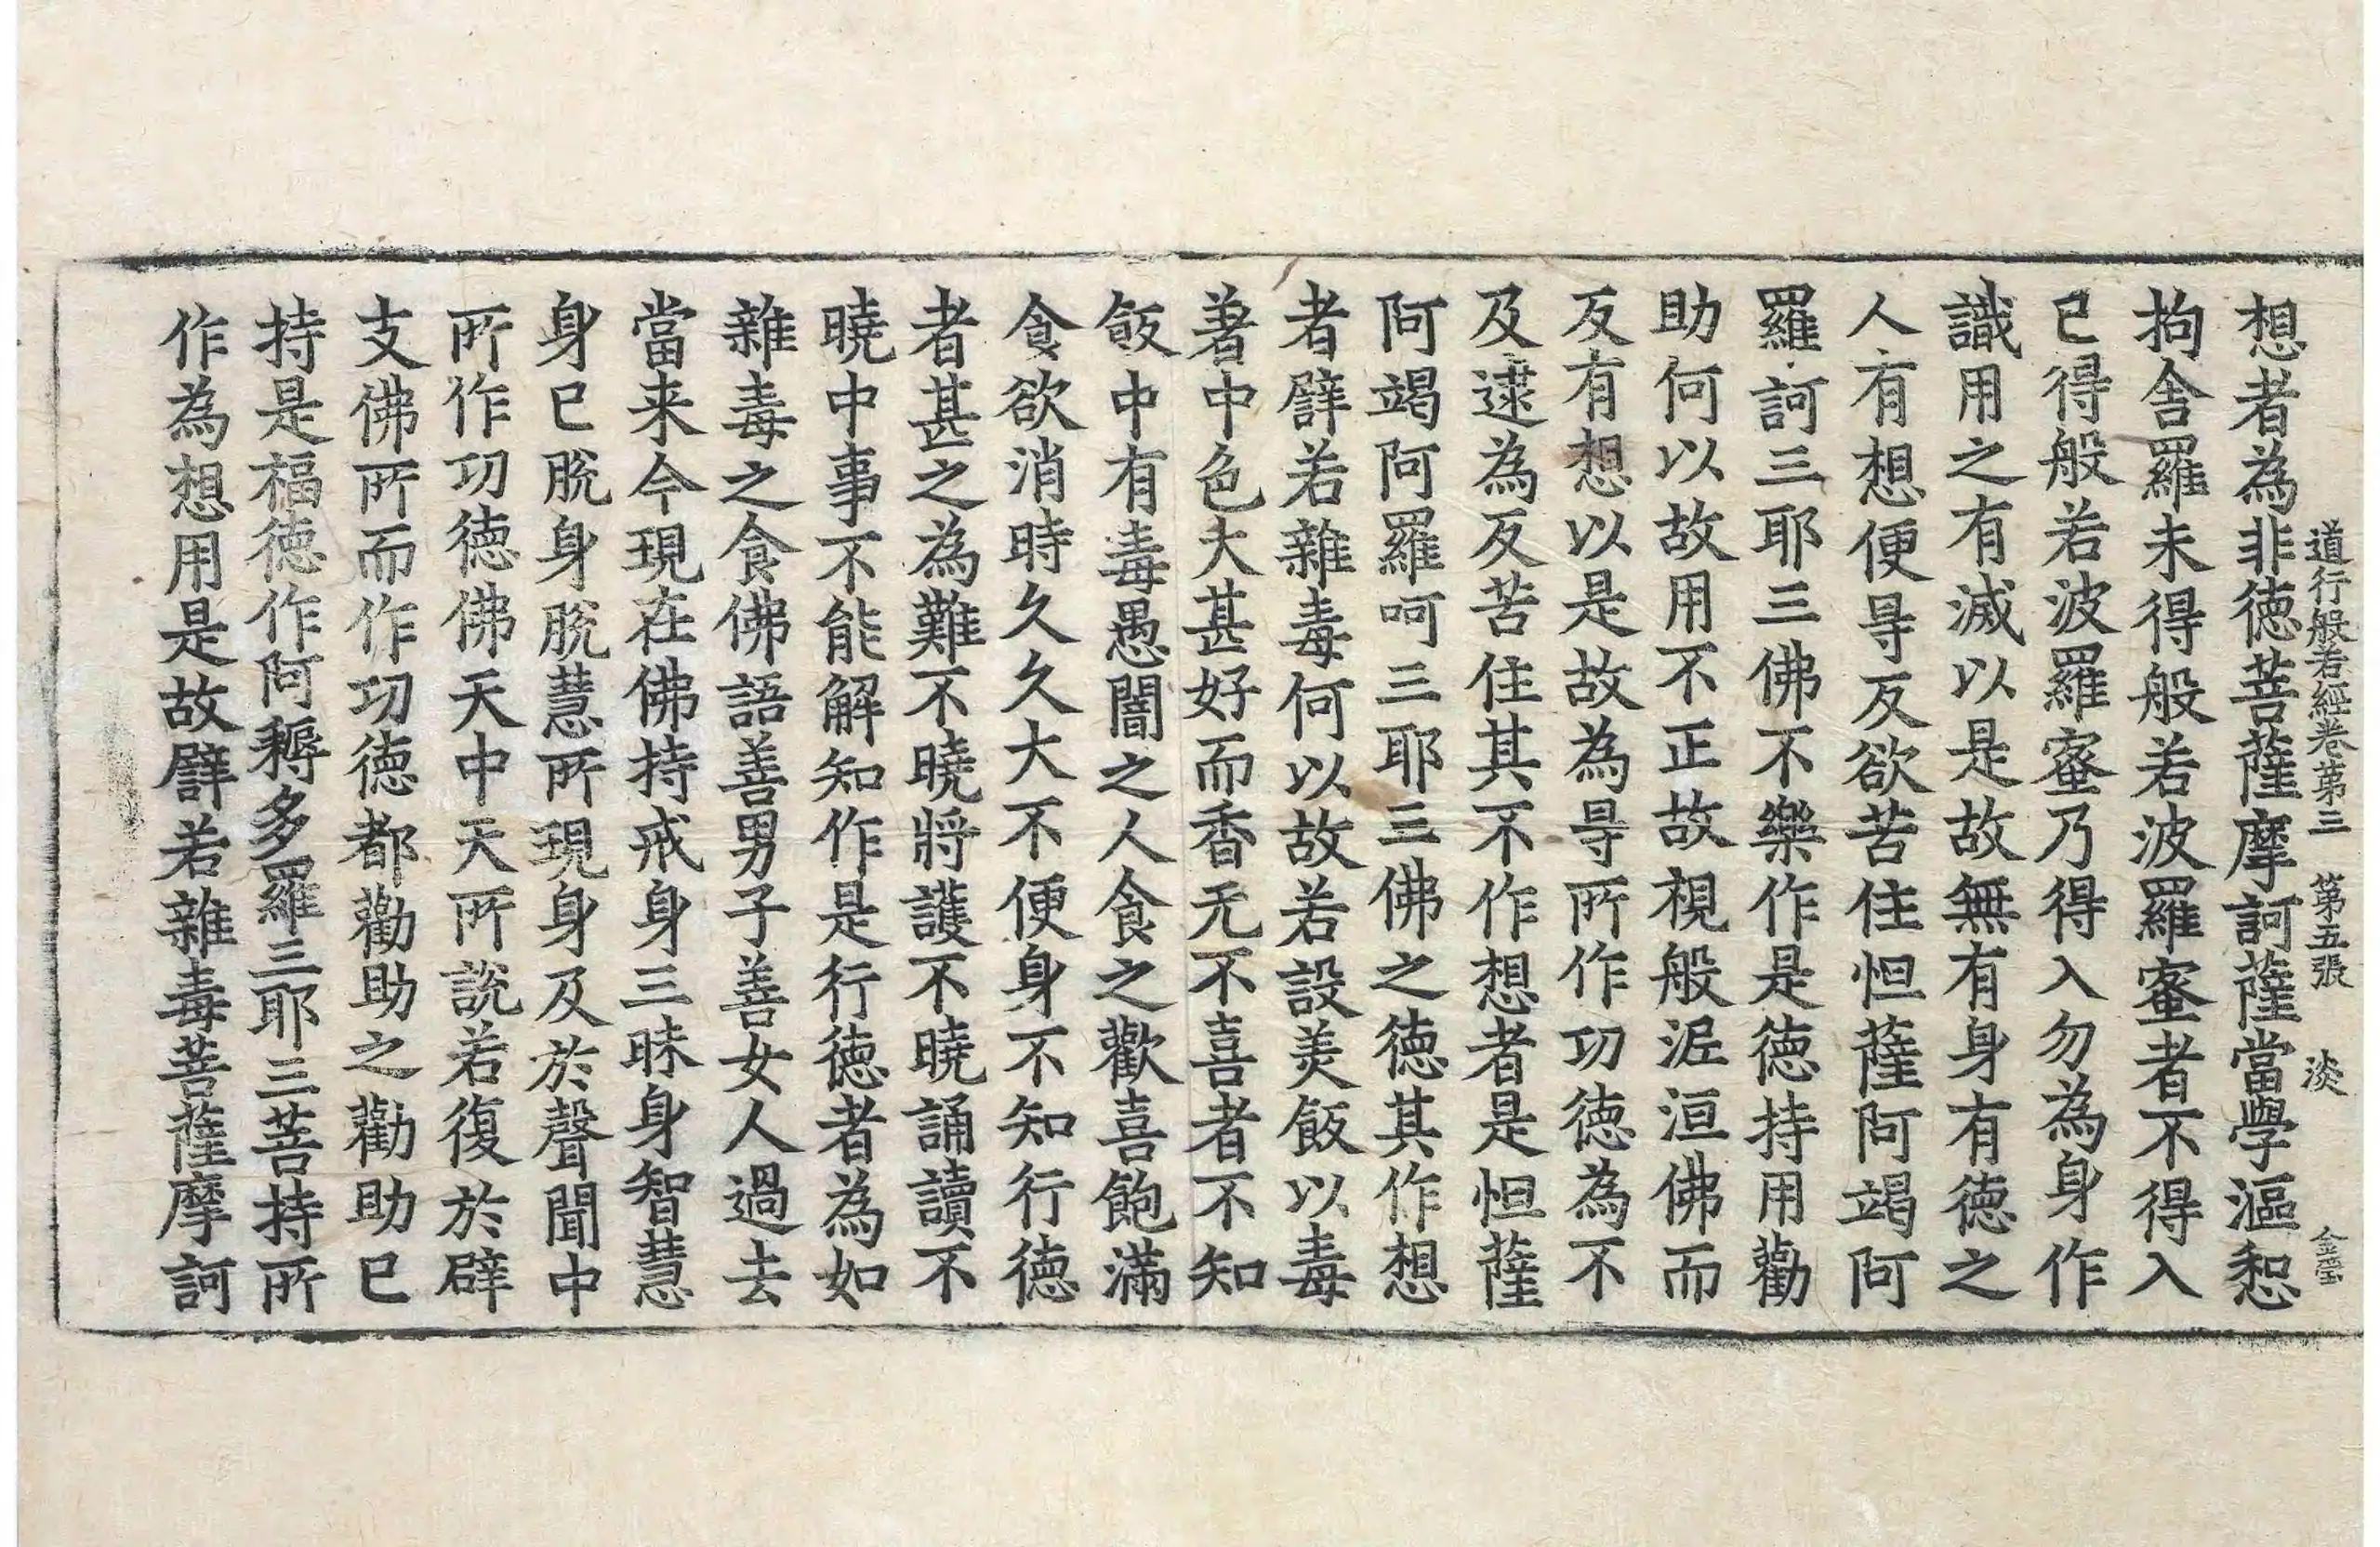 道行般若經卷第三　第五張　淡
想者為非德菩薩摩訶薩當學漚惒
拘舍羅未得般若波羅蜜者不得入
已得般若波羅蜜乃得入勿為身作
識用之有滅以是故無有身有德之
人有想便㝵反欲苦住怛薩阿竭阿
羅訶三耶三佛不樂作是德持用勸
助何以故用不正故視般泥洹佛而
反有想以是故為㝵所作功德為不
及逮為反苦住其不作想者是怛薩
阿竭阿羅呵三耶三佛之德其作想
者譬若雜毒何以故若設美飯以毒
著中色大甚好而香无不喜者不知
飯中有毒愚闇之人食之歡喜飽滿
食欲消時久久大不便身不知行德
者甚之為難不曉將護不曉誦讀不
曉中事不能解知作是行德者為如
雜毒之食佛語善男子善女人過去
當来今現在佛持戒身三昧身智慧
身已脫身脫慧所現身及於聲聞中
所作功德佛天中天所說若復於辟
支佛所而作功德都勸助之勸助已
持是福德作阿耨多羅三耶三菩持所
作為想用是故譬若雜毒菩薩摩訶